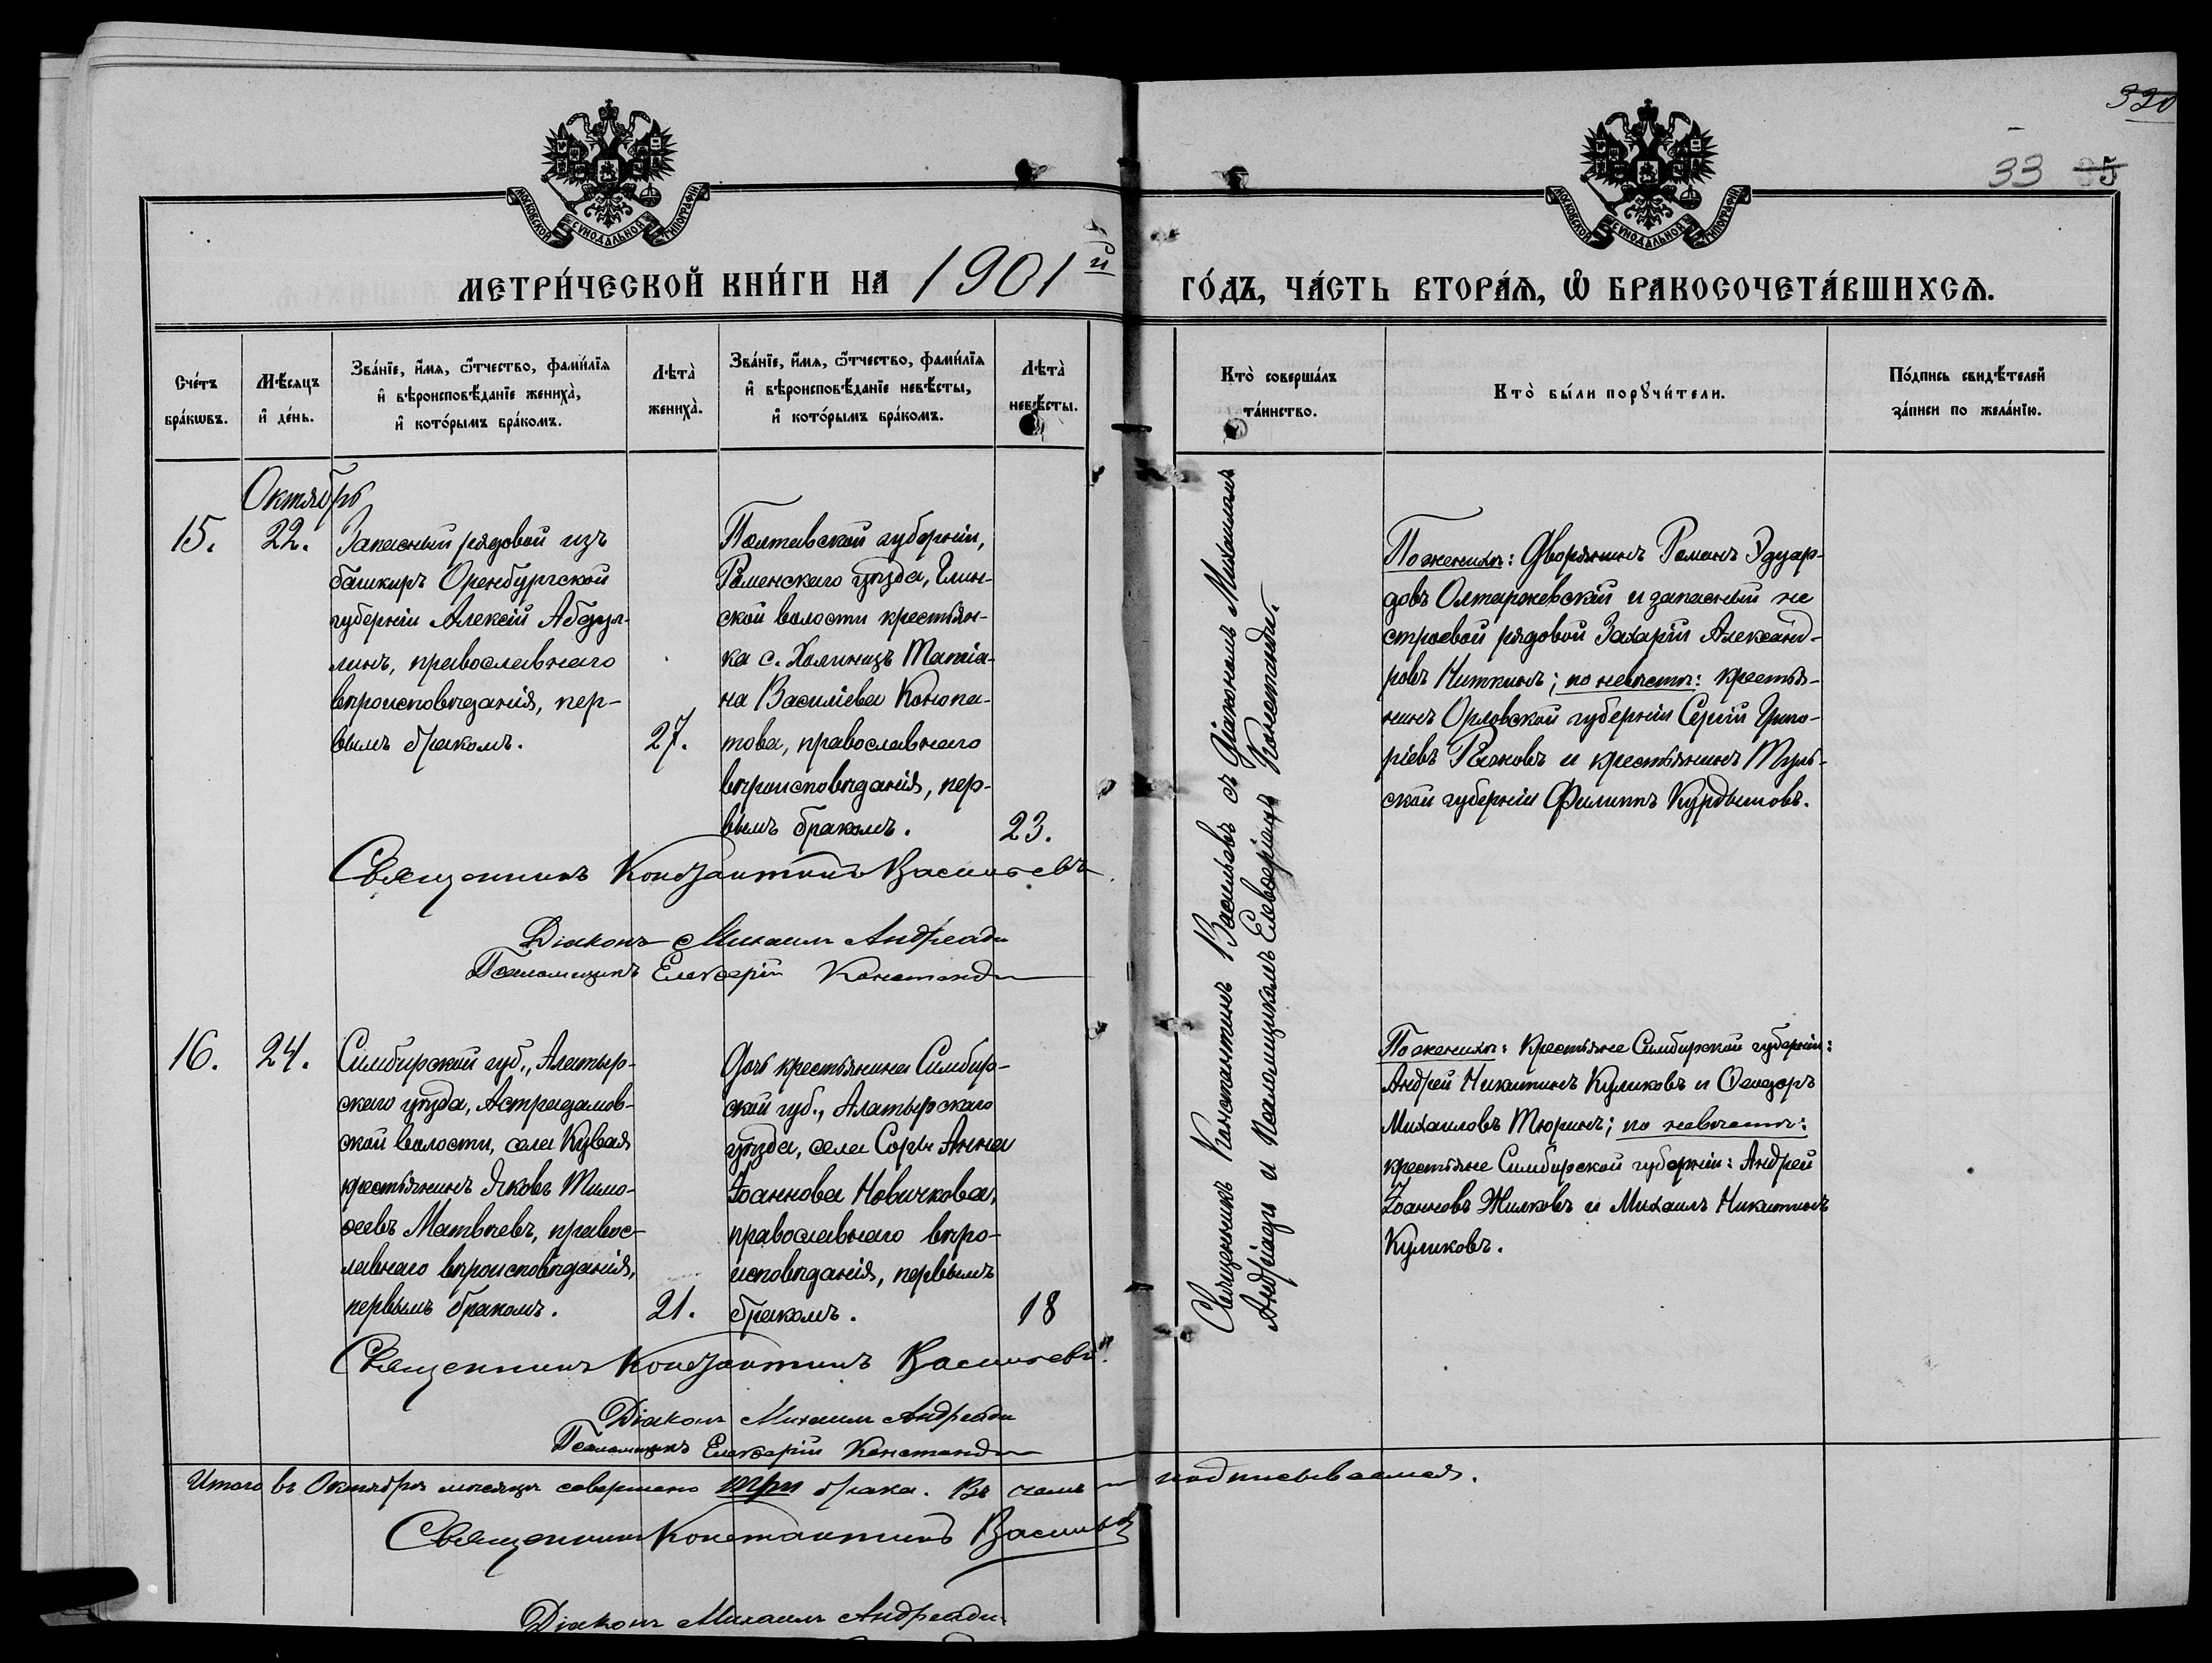 320
33 35
МОСКОВСКОЙ СѴНОДАЛЬНОЙ ТИПОГРАФІИ
МОСКОВСКОЙ СѴНОДАЛЬНОЙ ТИПОГРАФІИ
МЕТРИ́ЧЕСКОЙ КНИ́ГИ НА 1901й ГО́ДЪ, ЧА́СТЬ ВТОРА́Ѧ, Ѡ҆ БРАКОСОЧЕТА́ВШИХСѦ.
Сче́тъ
бра́кѡвъ.
Мѣ́сяцъ
и҆ де́нь.
Зва́нїе, и҆́мѧ, ѻ҆́тчество, фами́лїѧ
и҆ вѣроисповѣ́данїе жениха̀,
и҆ кото́рымъ бра́комъ.
Лѣта̀
жениха̀.
Зва́нїе, и҆́мѧ, ѻ҆́тчество, фами́лїѧ
и҆ вѣроисповѣ́данїе невѣ́сты,
и҆ кото́рымъ бра́комъ.
Лѣта̀
невѣ́сты.
Кто̀ соверша́лъ
та́инство.
Кто̀ бы́ли порꙋчи́тели.
По́дпись свидѣ́телей
за́писи по жела́нїю.
Октябрь
15.
22.
Запасный рядовой изъ
башкиръ Оренбургской
губерніи Алексій Абдул-
линъ, православнаго
вѣроисповѣданія, пер-
вымъ бракомъ.
27.
Полтавской губерніи,
Роменскаго уѣзда, Глин-
ской волости крестьян-
ка с. Халимецъ Татіа-
на Василіева Конопа-
това, православнаго
вѣроисповѣданія, пер-
вымъ бракомъ.
23.
Священникъ Константинъ Васильевъ съ Діакономъ Михаиломъ
Андріади и Псаломщикомъ Елевѳеріемъ Константиди.
По женихѣ: Дворянинъ Романъ Эдуар-
довъ Олтаржевскій и запасный не
строевой рядовой Захарій Александ-
ровъ Ниткинъ; по невѣстѣ: крестья-
нинъ Орловской губерніи Сергій Григо-
ріевъ Рыжовъ и крестьянинъ Туль-
ской губерніи Филиппъ Курдымовъ.
Священникъ Константинъ Васильевъ.
Діаконъ Михаилъ Андреади
Псаломщикъ Елевѳерій Констанди
16.
24.
Симбирской губ., Алатыр-
скаго уѣзда, Астрадамов-
ской волости, села Кувая
крестьянинъ Яковъ Тимо-
ѳеевъ Матвѣевъ, правос-
лавнаго вѣроисповѣданія,
первымъ бракомъ.
21.
Дочь крестьянина Симбир-
ской губ., Алатырскаго
уѣзда, села Сары Анна
Іоаннова Новичкова,
православнаго вѣро-
исповѣданія, первымъ
бракомъ.
18
По женихѣ: крестьяне Симбирской губерніи:
Андрей Никитинъ Куликовъ и Ѳеодоръ
Михаиловъ Тюринъ; по невѣстѣ:
крестьяне Симбирской губерніи: Андрей
Іоанновъ Жилковъ и Михаилъ Никитинъ
Куликовъ.
Священникъ Константинъ Васильевъ.
Діаконъ Михаилъ Андреади
Псаломщикъ Елевѳерій Констанди
Итого въ Октябрѣ мѣсяцѣ совершено три брака. Въ чемъ и подписываемся.
Священникъ Константинъ Васильевъ
Діаконъ Михаилъ Андреади